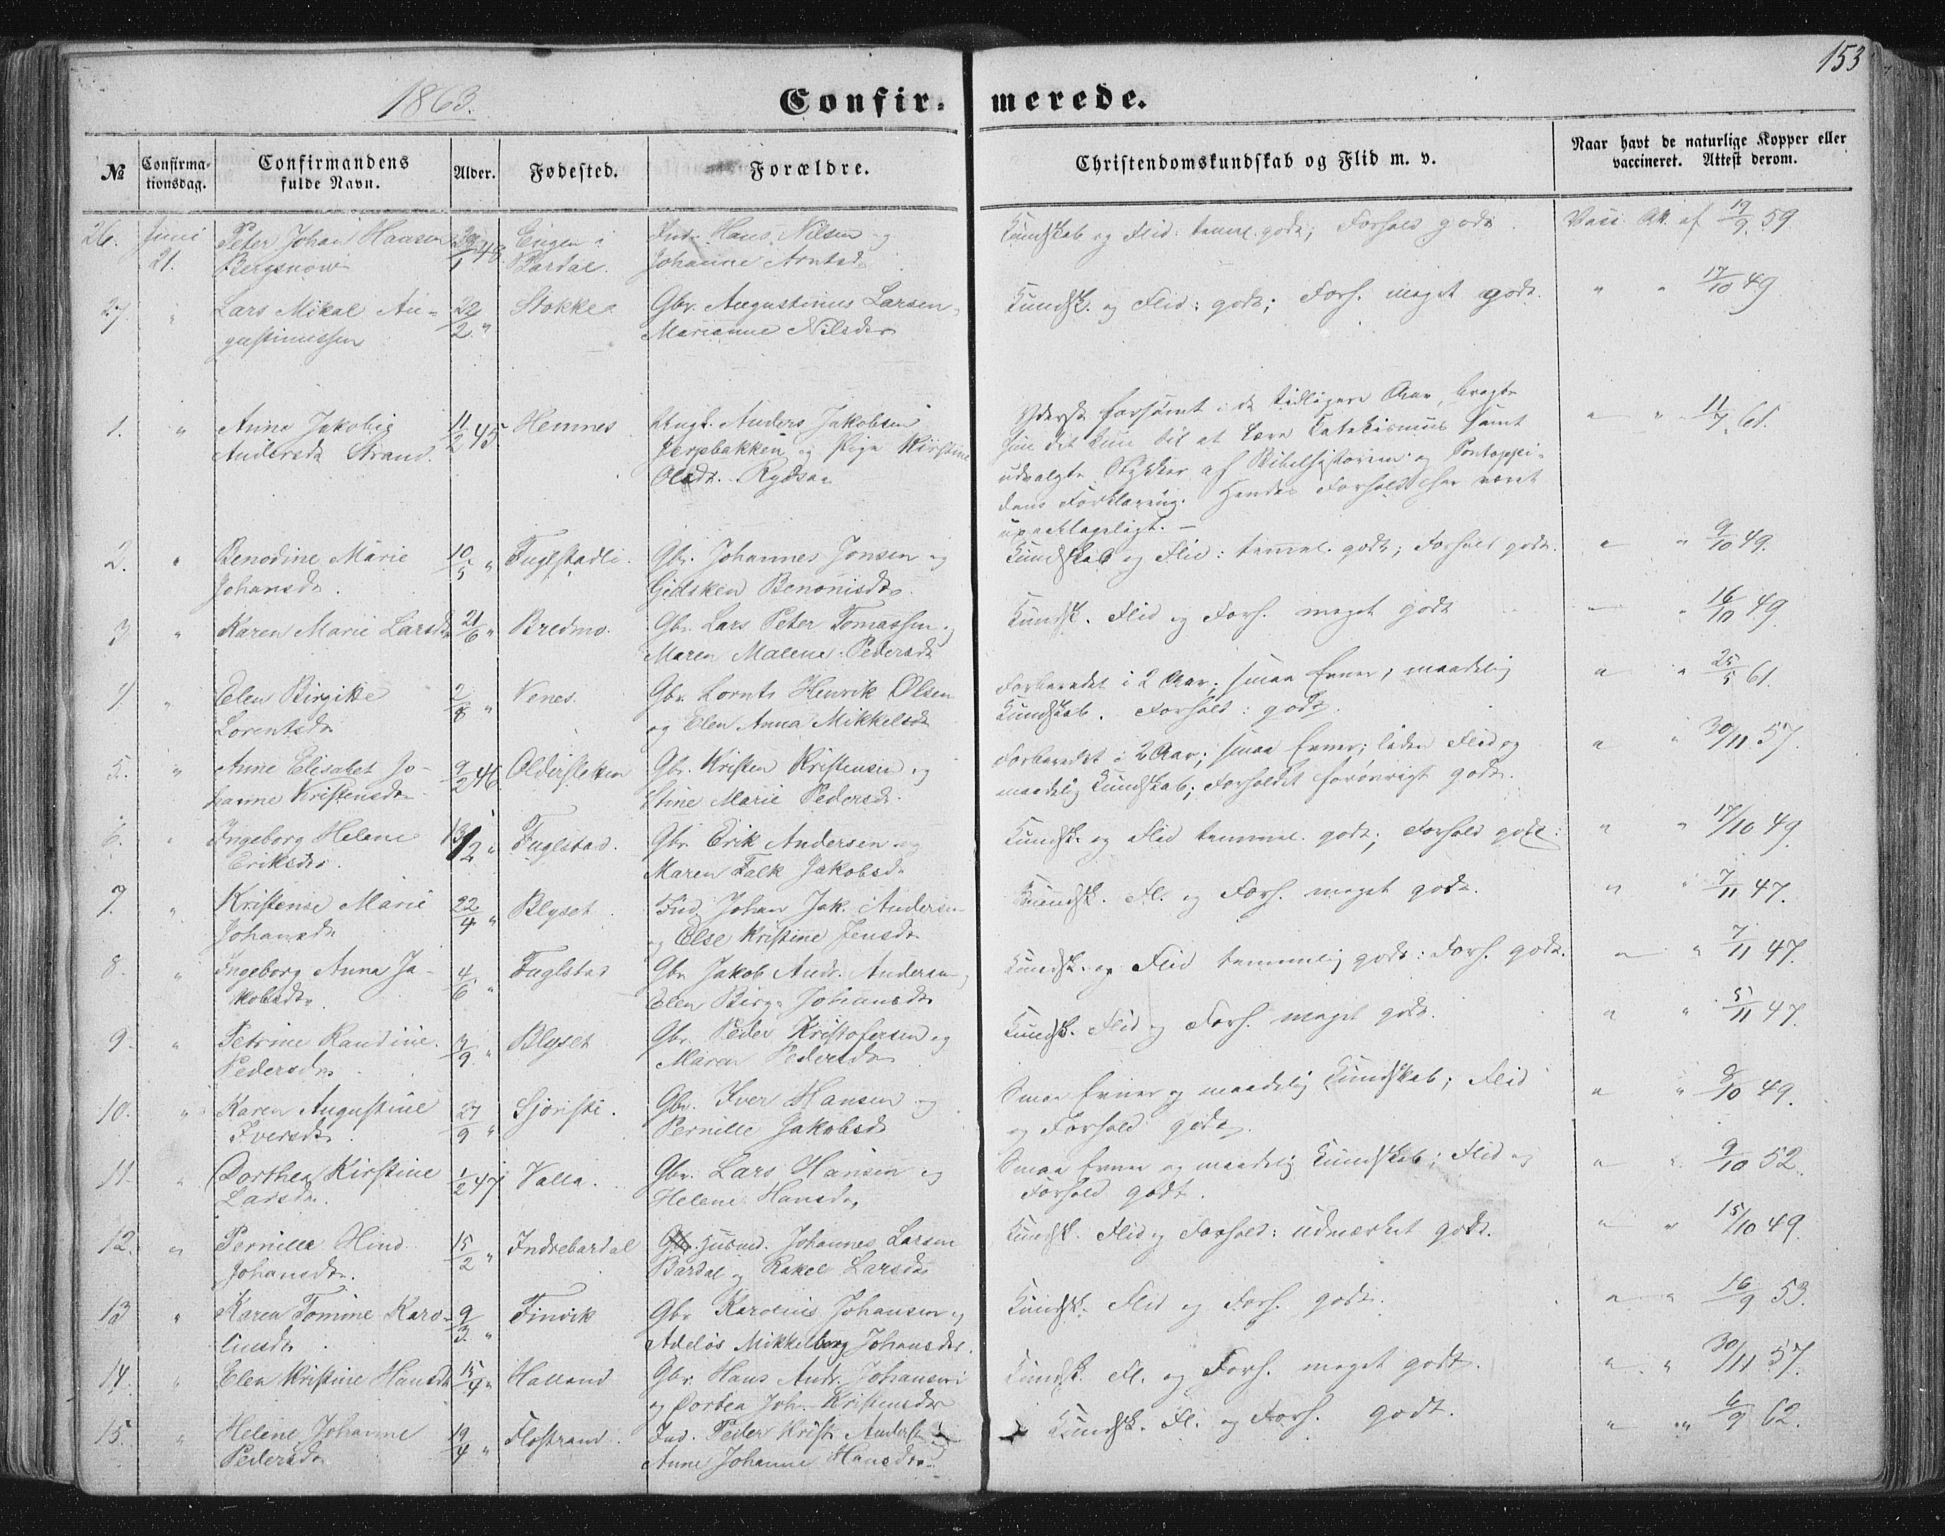 153
1863.
Confirmerede.
№ Confirmationsdag. Confirmandens fulde Navn. Alder. Fødested. Forældre. Christendomskundskab og Flid m. v. Naar havt de naturlige Kopper eller vaccineret. Attest derom.
26. Juni 21. Peter Johan Hansen 29/1 48 Engen i Ind. Hans Nilsen og Kundskab og Flid: temml. godt; Forhold godt. Vacc. Att. af 19/9 59
Bergsnov Bardal. Johanne Arntsd.
27. " Lars Mikal Au- 22/2 " Stokke. Gbr. Augustinus Larsen, Kundsk. og Flid: godt; Forh. meget godt. " " 17/10 49
gustinussen Marianne Nilsdr
1. " Anne Jakobig 11/2 45 Hemnes. Ungk. Anders Jakobsen Yderst forsømt i de tidligere Aar, bragte " " 11/7 61.
Andersd. Strand. Jerpbakken og Pige Kirstine hun det kun til at lære Katekismus samt
Olsdr. udvalgte Stykker af Bibelhistorien og Pontoppi-
dans Forklaring. Hendes Forhold har været
upaaklageligt. —
2. " Benodine Marie 10/5 " Fuglstadli. Gbr. Johannes Jonsen og Kundskab og Flid: temml. godt; Forhold godt. " " 9/10 49.
Johansdr. Gidsken Benonisdr.
3 " Karen Marie Larsdr 21/6 " Bredmo. Gbr. Lars Peter Tomassen og Kundsk. Flid og Forh. meget godt " 16/10 49
Maren Malene Pedersdr
4. " Elen Birgitte 2/8 " Nenes. Gbr. Lornts Henrik Olsen Forberedet i 2 Aar; smaa Evner; maadelig " " 25/5 61.
Lorentsdr og Elen Anna Mikkelsdr Kundskab. Forhold: godt.
5. " Anne Elisabet Jo- 9/2 46 Oldersletten Gbr. Kristen Kristensen og Forberedet i 2 Aar; smaa Evner; liden Flid og " " 30/11 57.
hanne Kristensdr Stine Marie Pedersdr. maadelig Kundskab; Forholdet forøvrigt godt.
6. " Ingeborg Helene 13/2 " Fuglstad. Gbr. Erik Andersen og Kundsk. og Flid temml. godt; Forhold godt. " " 17/10 49.
Eriksdr. Maren Falk Jakobsd.
7. " Kristense Marie 22/4 " Blyset. Ind. Johan Jak. Andersen Kuendsk. Fl. og Forh. meget godt. " " 7/11 47.
Johansdr og Else Kristine Jensdr
8. " Ingeborg Anna Ja- 4/6 " Fuglstad Gbr. Jakob Andr. Andersen, Kundsk. og Flid temmelig godt: Forh. godt. " " 7/11 47.
kobsdr. Elen Birg. Johansdr
9. " Petrine Randine. 7/9 " Blyset Gbr. Peder Kristofersen og Kundsk. Flid og Forh. meget godt. " " 5/11 47.
Pedersdr Maren Pedersdr
10. " Karen Augustine 27/9 " Sjøristi. Gbr. Iver Hansen og Smaa Evner og maadelig Kundskab; Flid " " 8/10 49.
Iversdr. Pernille Jakobsdr og Forhold godt.
11. " Dorthea Kirstine 1/2 47 Valla. Gbr. Lars Hansen og Smaa Evner og maadelig Kundskab; Flid og " " 9/10 52.
Larsdr. Helene Hansdr. Forhold godt.
12. " Pernille Hind 15/2 " Indrebardal Husmd. Johannes Larsen Kundsk. Flid og Forhold: udmærket godt. " " 15/10 49.
Johansdr. Bardal og Rakel Larsdr
13 " Karen Tomine Karo- 9/3. " Finvik Gbr. Karolius Johansen og Kundsk. Flid og Forh. godt. " " 16/9 53.
liusdr. Adeløs Mikkelborg Johansdr.
14. " Elen Kristine Hansdr 15/4 " Halland Gbr. Hans Andr. Johansen Kundsk. Fl. og Forh. meget godt. " " 30/11 57.
og Dortea Joh. Kristensdr
15. " Helene Johanne 19/4 " Flostrand. Ind. Peder Krist. Anders. Kundsk. Fl. og Forh. godt. " " 6/9 62.
Pedersdr Anne Johanne Hansdr.